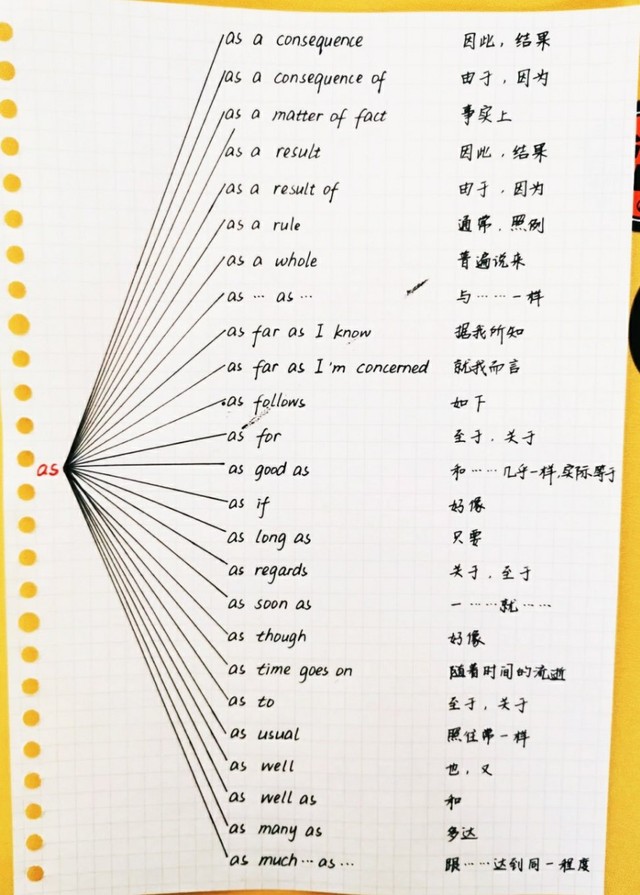 as a consequence 因此，结果
as a consequence of 由于，因为
as a matter of fact 事实上
as a result 因此，结果
as a result of 由于，因为
as a rule 通常，照例
as a whole 普遍说来
as … as … 与……一样
as far as I know 据我所知
as far as I'm concerned 就我而言
as follows 如下
as for 至于，关于
as
as good as 和……几乎一样，实际等于
as if 好像
as long as 只要
as regards 关于，至于
as soon as 一……就……
as though 好像
as time goes on 随着时间的流逝
as to 至于，关于
as usual 照往常一样
as well 也，又
as well as 和
as many as 多达
as much … as … 跟……达到同一程度